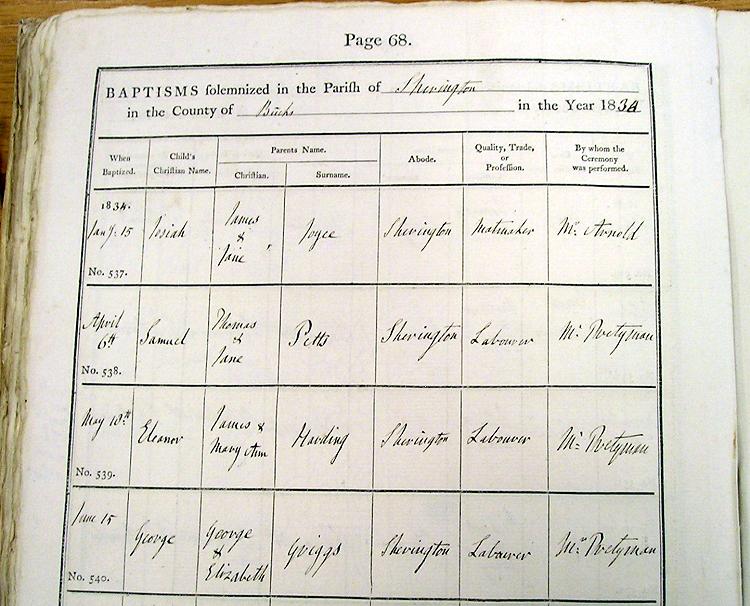 Page 68.
BAPTISMS solemnized in the Parish of Sherington
in the County of Bucks in the Year 1834
When Baptized.
Child's Christian Name.
Parents Name.
Christian.
Surname.
Abode.
Quality, Trade, or Profession.
By whom the Ceremony was performed.
1834.
Jany: 15
No. 537.
Josiah
James
&
Jane
Joyce
Sherington
Matmaker
Mr. Arnold
April
6th
No. 538.
Samuel
Thomas
&
Jane
Petts
Sherington
Labourer
Mr. Pretyman
May 18th
No. 539.
Eleanor
James &
Mary Ann
Harding
Sherington
Labourer
Mr. Pretyman
June 15
No. 540.
George
George
&
Elizabeth
Griggs
Sherington
Labourer
Mr. Pretyman